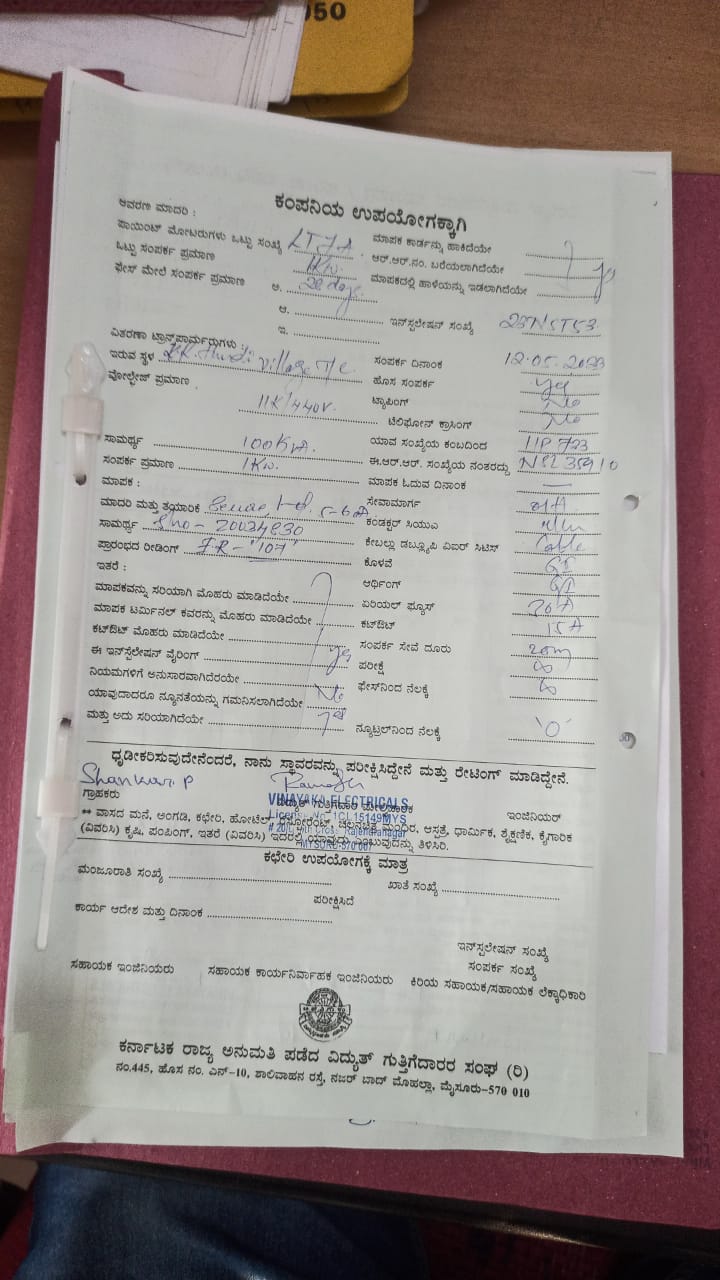 050
ಕಂಪನಿಯ ಉಪಯೋಗಕ್ಕಾಗಿ
ಆವರಣ ಮಾದರಿ :
ಪಾಯಿಂಟ್ ಮೋಟರುಗಳು ಒಟ್ಟು ಸಂಖ್ಯೆ ಮಾಪಕ ಕಾರ್ಡನ್ನು ಹಾಕಿದೆಯೇ
ಒಟ್ಟು ಸಂಪರ್ಕ ಪ್ರಮಾಣ 1Kw. ಆರ್.ಆರ್.ನಂ. ಬರೆಯಲಾಗಿದೆಯೇ
ಫೇಸ್ ಮೇಲೆ ಸಂಪರ್ಕ ಪ್ರಮಾಣ ಅ. 28 days ಮಾಪಕದಲ್ಲಿ ಹಾಳೆಯನ್ನು ಇಡಲಾಗಿದೆಯೇ yes
ಆ. ಇನ್‌ಸ್ಟಲೇಷನ್ ಸಂಖ್ಯೆ
ಇ.
ವಿತರಣಾ ಟ್ರಾನ್ಸ್‌ಫಾರ್ಮರುಗಳು :
ಇರುವ ಸ್ಥಳ village T/c ಸಂಪರ್ಕ ದಿನಾಂಕ 12.05.2023
ವೋಲ್ಟೇಜ್ ಪ್ರಮಾಣ 11K/440V. ಹೊಸ ಸಂಪರ್ಕ yes
ಟ್ಯಾಪಿಂಗ್ No
ಟೆಲಿಫೋನ್ ಕ್ರಾಸಿಂಗ್ No
ಸಾಮರ್ಥ್ಯ 100KVA. ಯಾವ ಸಂಖ್ಯೆಯ ಕಂಬದಿಂದ
ಸಂಪರ್ಕ ಪ್ರಮಾಣ 1Kw. ಈ.ಆರ್.ಆರ್. ಸಂಖ್ಯೆಯ ನಂತರದ್ದು
ಮಾಪಕ : ಮಾಪಕ ಓದುವ ದಿನಾಂಕ —
ಮಾದರಿ ಮತ್ತು ತಯಾರಿಕೆ ಸೇವಾಮಾರ್ಗ
ಸಾಮರ್ಥ್ಯ ಕಂಡಕ್ಟರ್ ಸಿಯುಎ
ಪ್ರಾರಂಭದ ರೀಡಿಂಗ್ ಕೇಬಲ್ಲು ಡಬ್ಲ್ಯೂಪಿ ವಿಐಆರ್ ಸಿಟಿಸ್ Cable
ಇತರೆ : ಕೊಳವೆ GI
ಮಾಪಕವನ್ನು ಸರಿಯಾಗಿ ಮೊಹರು ಮಾಡಿದೆಯೇ ಆರ್ಥಿಂಗ್ GI
ಮಾಪಕ ಟರ್ಮಿನಲ್ ಕವರನ್ನು ಮೊಹರು ಮಾಡಿದೆಯೇ ಏರಿಯಲ್ ಫ್ಯೂಸ್
ಕಟ್‌ಔಟ್ ಮೊಹರು ಮಾಡಿದೆಯೇ ಕಟ್‌ಔಟ್ 15A
ಈ ಇನ್‌ಸ್ಟಲೇಷನ್ ವೈರಿಂಗ್ yes ಸಂಪರ್ಕ ಸೇವೆ ದೂರು 20m
ನಿಯಮಗಳಿಗೆ ಅನುಸಾರವಾಗಿದೆಯೇ ಪರೀಕ್ಷೆ ∞
ಯಾವುದಾದರೂ ನ್ಯೂನತೆಯನ್ನು ಗಮನಿಸಲಾಗಿದೆಯೇ No ಫೇಸ್‌ನಿಂದ ನೆಲಕ್ಕೆ ∞
ಮತ್ತು ಅದು ಸರಿಯಾಗಿದೆಯೇ yes ನ್ಯೂಟ್ರಲ್‌ನಿಂದ ನೆಲಕ್ಕೆ '0'
ಧೃಡೀಕರಿಸುವುದೇನೆಂದರೆ, ನಾನು ಸ್ಥಾವರವನ್ನು ಪರೀಕ್ಷಿಸಿದ್ದೇನೆ ಮತ್ತು ರೇಟಿಂಗ್ ಮಾಡಿದ್ದೇನೆ.
Shankar.P
ಗ್ರಾಹಕರು ವಿದ್ಯುತ್ ಗುತ್ತಿಗೆದಾರ ಇಂಜಿನಿಯರ್
VINAYAKA ELECTRICALS
** ವಾಸದ ಮನೆ, ಅಂಗಡಿ, ಕಛೇರಿ, ಹೋಟೆಲ್, ರೆಸ್ಟೋರೆಂಟ್, ಚಲನಚಿತ್ರ ಮಂದಿರ, ಆಸ್ಪತ್ರೆ, ಧಾರ್ಮಿಕ, ಶೈಕ್ಷಣಿಕ, ಕೈಗಾರಿಕ
(ವಿವರಿಸಿ) ಕೃಷಿ, ಪಂಪಿಂಗ್, ಇತರೆ (ವಿವರಿಸಿ) ಇದರಲ್ಲಿ ಯಾವುದು ಎಂಬುವುದನ್ನು ತಿಳಿಸಿರಿ.
MYSURU-570 007
ಕಛೇರಿ ಉಪಯೋಗಕ್ಕೆ ಮಾತ್ರ
ಮಂಜೂರಾತಿ ಸಂಖ್ಯೆ ಖಾತೆ ಸಂಖ್ಯೆ
ಪರೀಕ್ಷಿಸಿದೆ
ಕಾರ್ಯ ಆದೇಶ ಮತ್ತು ದಿನಾಂಕ
ಇನ್‌ಸ್ಟಲೇಷನ್ ಸಂಖ್ಯೆ
ಸಂಪರ್ಕ ಸಂಖ್ಯೆ
ಸಹಾಯಕ ಇಂಜಿನಿಯರು ಸಹಾಯಕ ಕಾರ್ಯನಿರ್ವಾಹಕ ಇಂಜಿನಿಯರು ಕಿರಿಯ ಸಹಾಯಕ/ಸಹಾಯಕ ಲೆಕ್ಕಾಧಿಕಾರಿ
ಕರ್ನಾಟಕ ರಾಜ್ಯ ಅನುಮತಿ ಪಡೆದ ವಿದ್ಯುತ್ ಗುತ್ತಿಗೆದಾರರ ಸಂಘ (ರಿ)
ನಂ.445, ಹೊಸ ನಂ. ಎನ್-10, ಶಾಲಿವಾಹನ ರಸ್ತೆ, ನಜರ್ ಬಾದ್ ಮೊಹಲ್ಲಾ, ಮೈಸೂರು-570 010